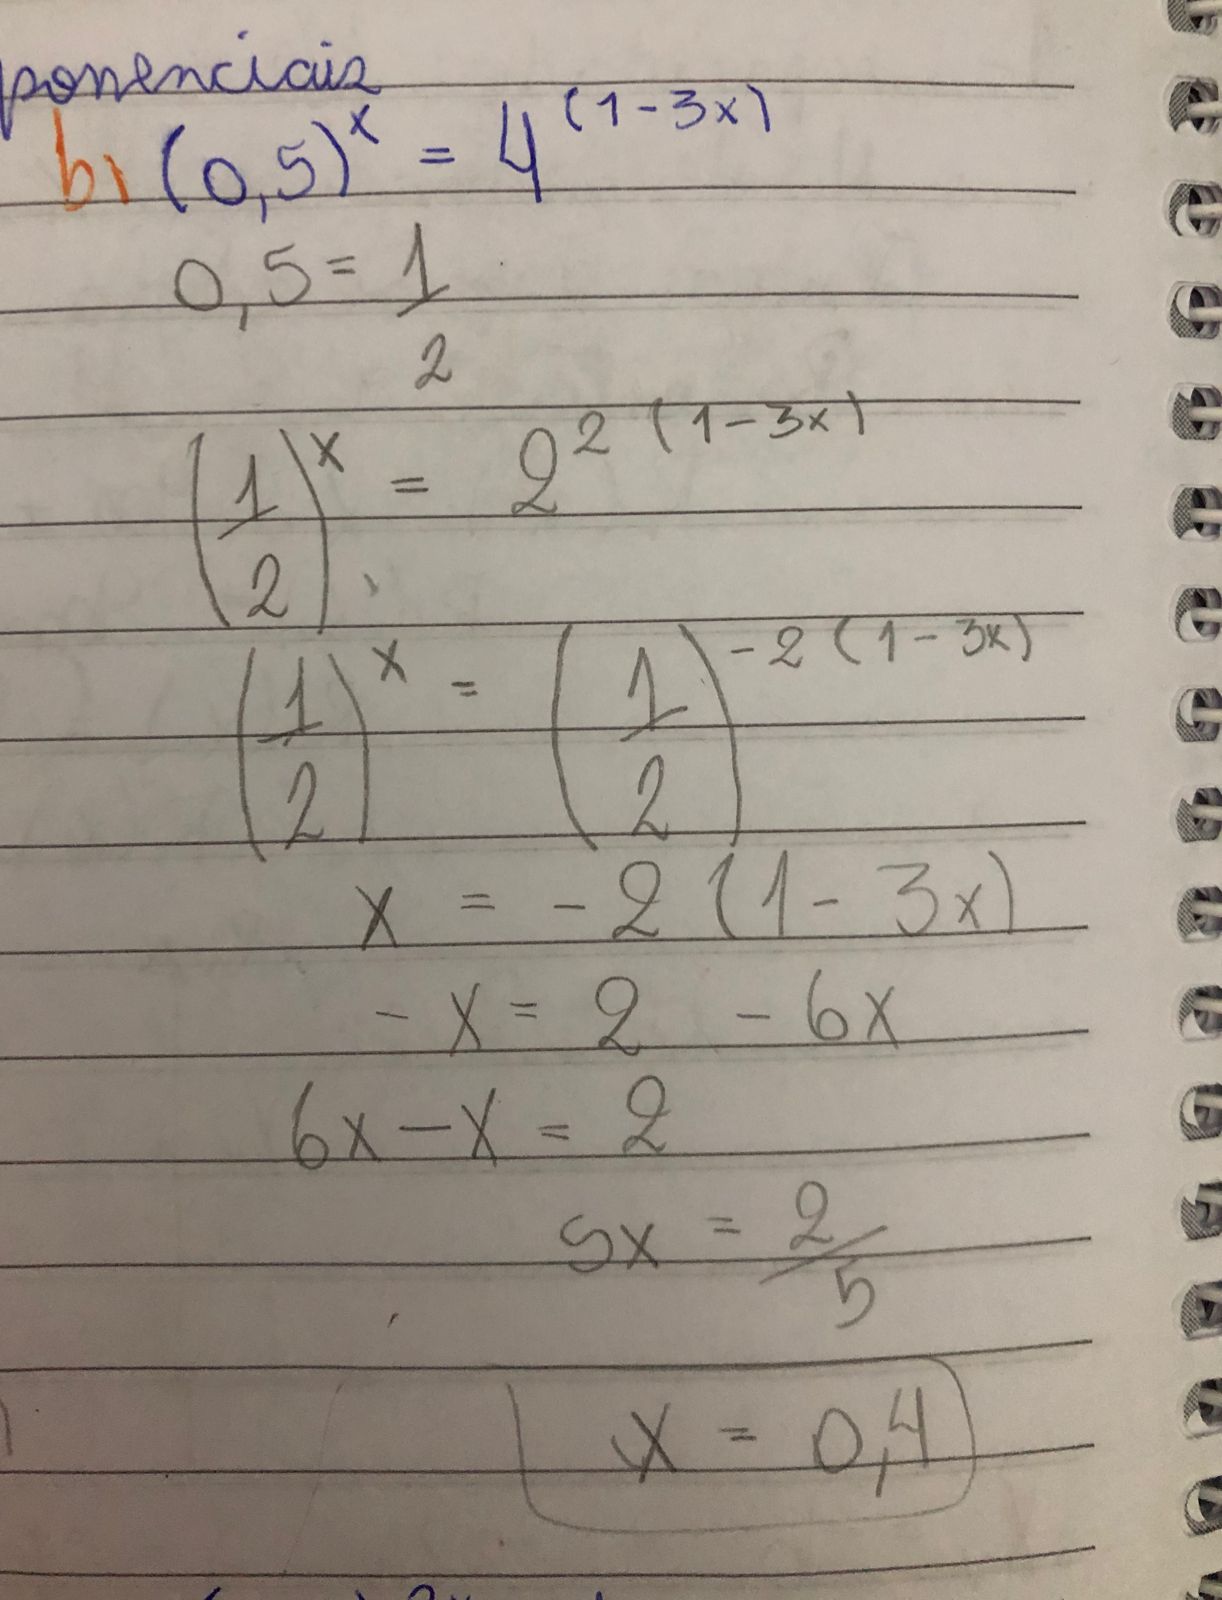 ponenciais
b) (0,5)^x = 4^(1-3x)
0,5 = 1/2
(1/2)^x = 2^2(1-3x)
(1/2)^x = (1/2)^-2(1-3x)
x = -2(1-3x)
-x = 2 - 6x
6x - x = 2
5x = 2/5
x = 0,4